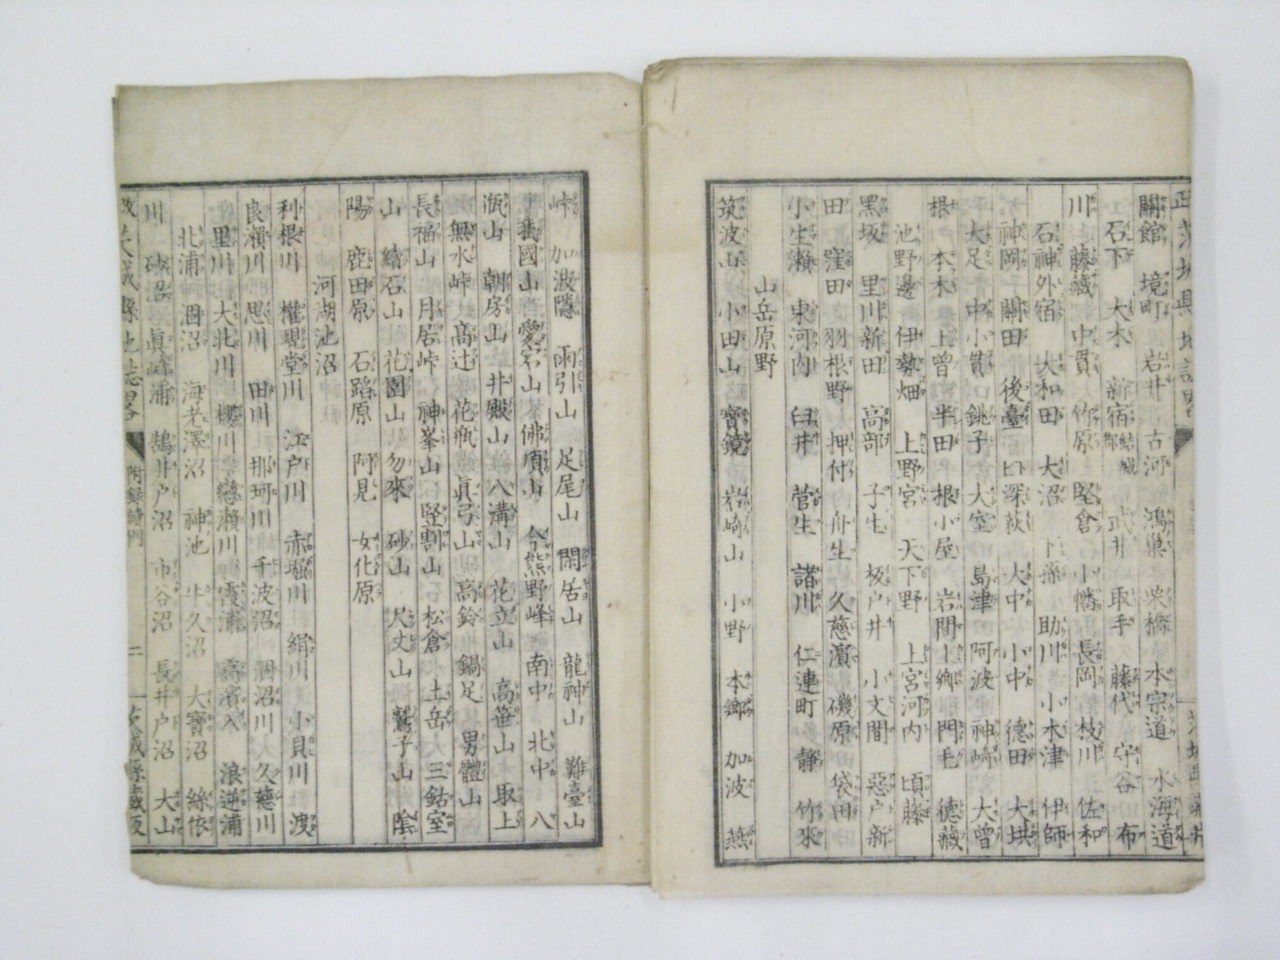 關館 境町 岩井 古河 鴻巢 栗橋 本宗道 水海道
石下 大木 新宿 結城郡 武井 取手 藤代 守谷 布
川 藤藏 中貫 竹原 堅倉 小幡 長岡 枝川 佐和
石神外宿 大和田 大沼 下孫 助川 小木津 伊師
神岡 關田 後臺 深荻 大中 小中 德田 大垬
大足 中小貫 銚子 大室 島津 阿波 神崎 大曾
根 本木 上曾 半田 根小屋 岩間上鄉 門毛 德藏
池野邊 伊勢畑 上野宮 天下野 上宮河內 頃藤
黑坂 里川新田 高部 子生 板戶井 小文間 惡戶新
田 窪田 羽根野 押付 舟生 久慈濱 磯原 袋田
小生瀨 東河內 臼井 菅生 諸川 仁連町 靜 竹來
山岳原野
筑波山 小田山 寶鏡 岩崎山 小野 本鄉 加波 燕
峠 加波隱 雨引山 足尾山 閑居山 龍神山 難臺山
我國山 愛宕山 佛頂山 今熊野峰 南中 北中 八
瓶山 朝房山 井殿山 八溝山 花立山 高笹山 取上
無水峠 高辻 花瓶 眞弓山 高鈴 鍋足 男體山
長福山 月居峠 神峯山 竪割山 松倉 土岳 三鈷室
山 續石山 花園山 勿來 砂山 犬丈山 鷲子山 陰
陽 鹿田原 石蹈原 阿見 女化原
河湖池沼
利根川 權現堂川 江戶川 赤堀川 絹川 小貝川 渡
良瀨川 思川 田川 那珂川 千波沼 涸沼川 久慈川
里川 大北川 櫻川 戀瀨川 霞浦 高濱入 浪逆浦
北浦 涸沼 海老澤沼 神池 牛久沼 大寶沼 絲依
川 砂沼 眞峰浦 鵠井戶沼 市谷沼 長井戶沼 大山
改正茨城縣地誌畧 附錄讀例 二 茨城縣藏版